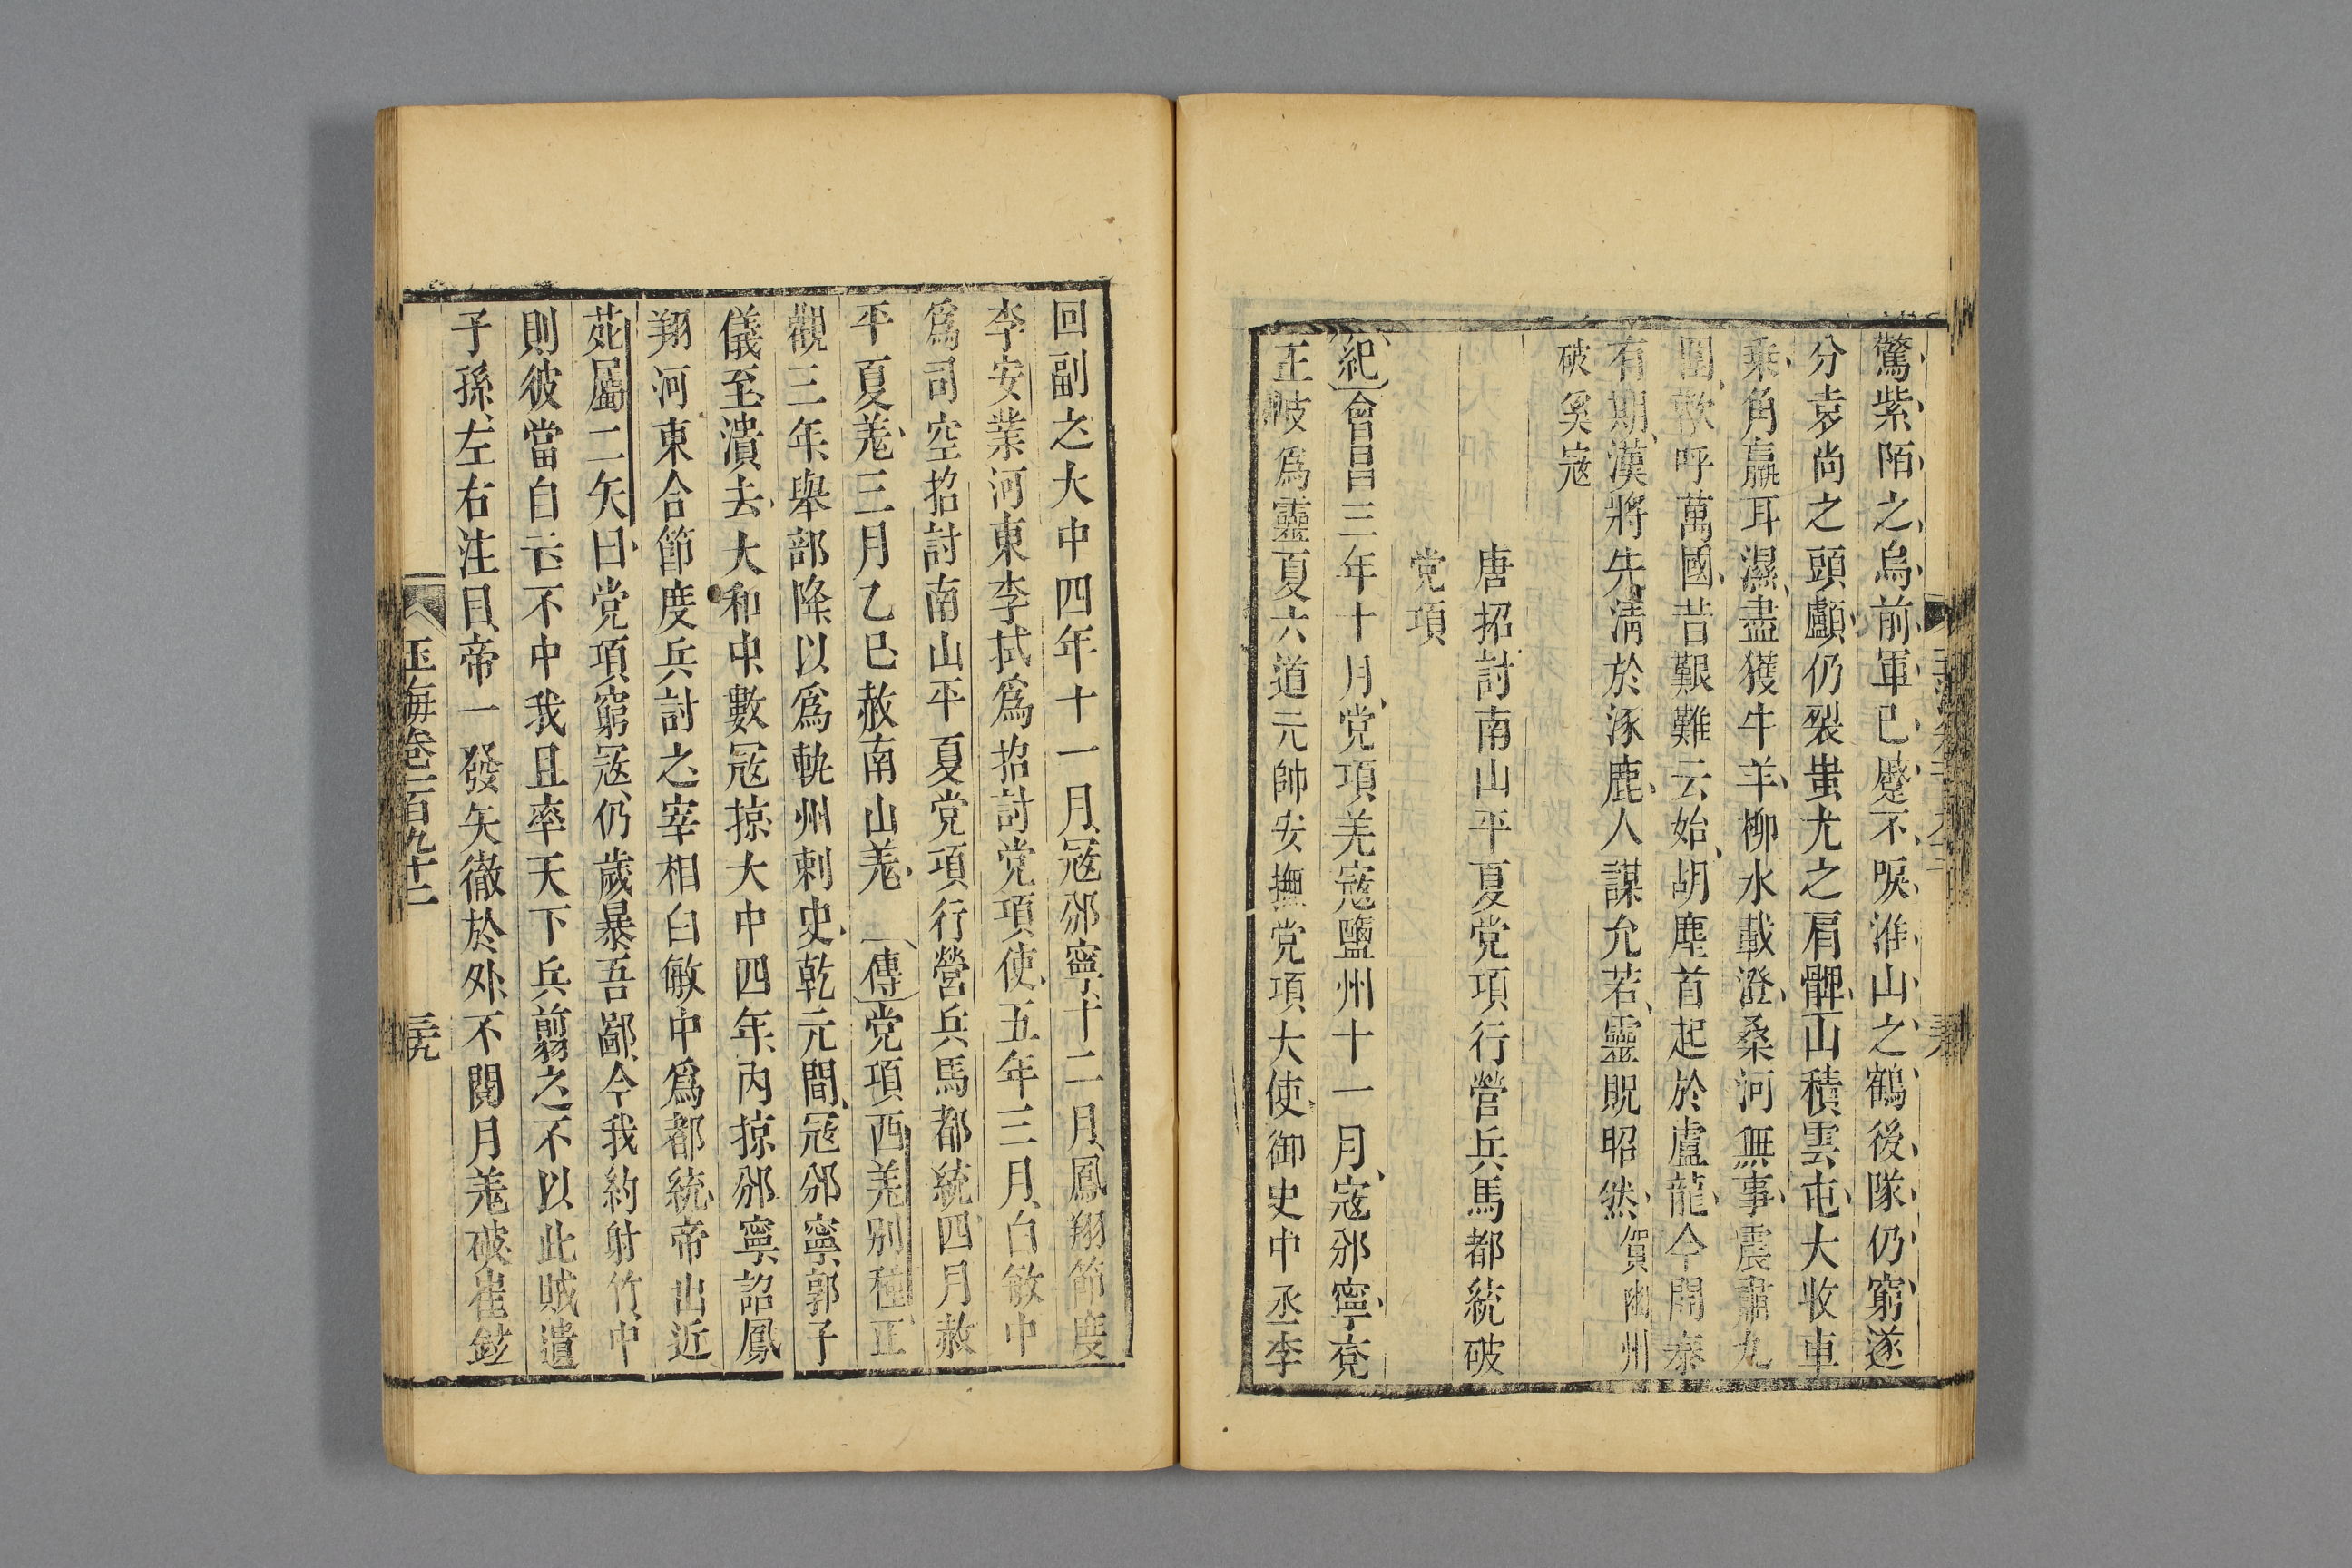 驚紫陌之烏前軍已蹙不唳淮山之鶴後隊仍窮遂
分袁尚之頭顱仍裂蚩尤之肩髀山積雲屯大收車
乘角羸耳濕盡獲牛羊柳水載澄桑河無事震肅九
圍歡呼萬國昔艱難云始胡塵首起於盧龍今開泰
有期漢將先淸於涿鹿人謀允若靈貺昭然賀幽州
破奚寇
唐招討南山平夏党項行營兵馬都統破
党項
紀會昌三年十月党項羌寇鹽州十一月寇邠寧兗
王岐爲靈夏六道元帥安撫党項大使御史中丞李
回副之大中四年十一月寇邠寧十二月鳳翔節度
李安業河東李拭爲招討党項使五年三月白敏中
爲司空招討南山平夏党項行營兵馬都統四月赦
平夏羌三月乙巳赦南山羌 傳党項西羌別種正
觀三年舉部降以爲軌州刺史乾元間寇邠寧郭子
儀至潰去大和中數寇掠大中四年內掠邠寧詔鳳
翔河東合節度兵討之宰相白敏中爲都統帝出近
苑屬二矢曰党項窮寇仍歲暴吾鄙今我約射竹中
則彼當自亡不中我且率天下兵翦之不以此賊遺
子孫左右注目帝一發矢徹於外不閱月羌破崔鉉
玉海卷一百九十一